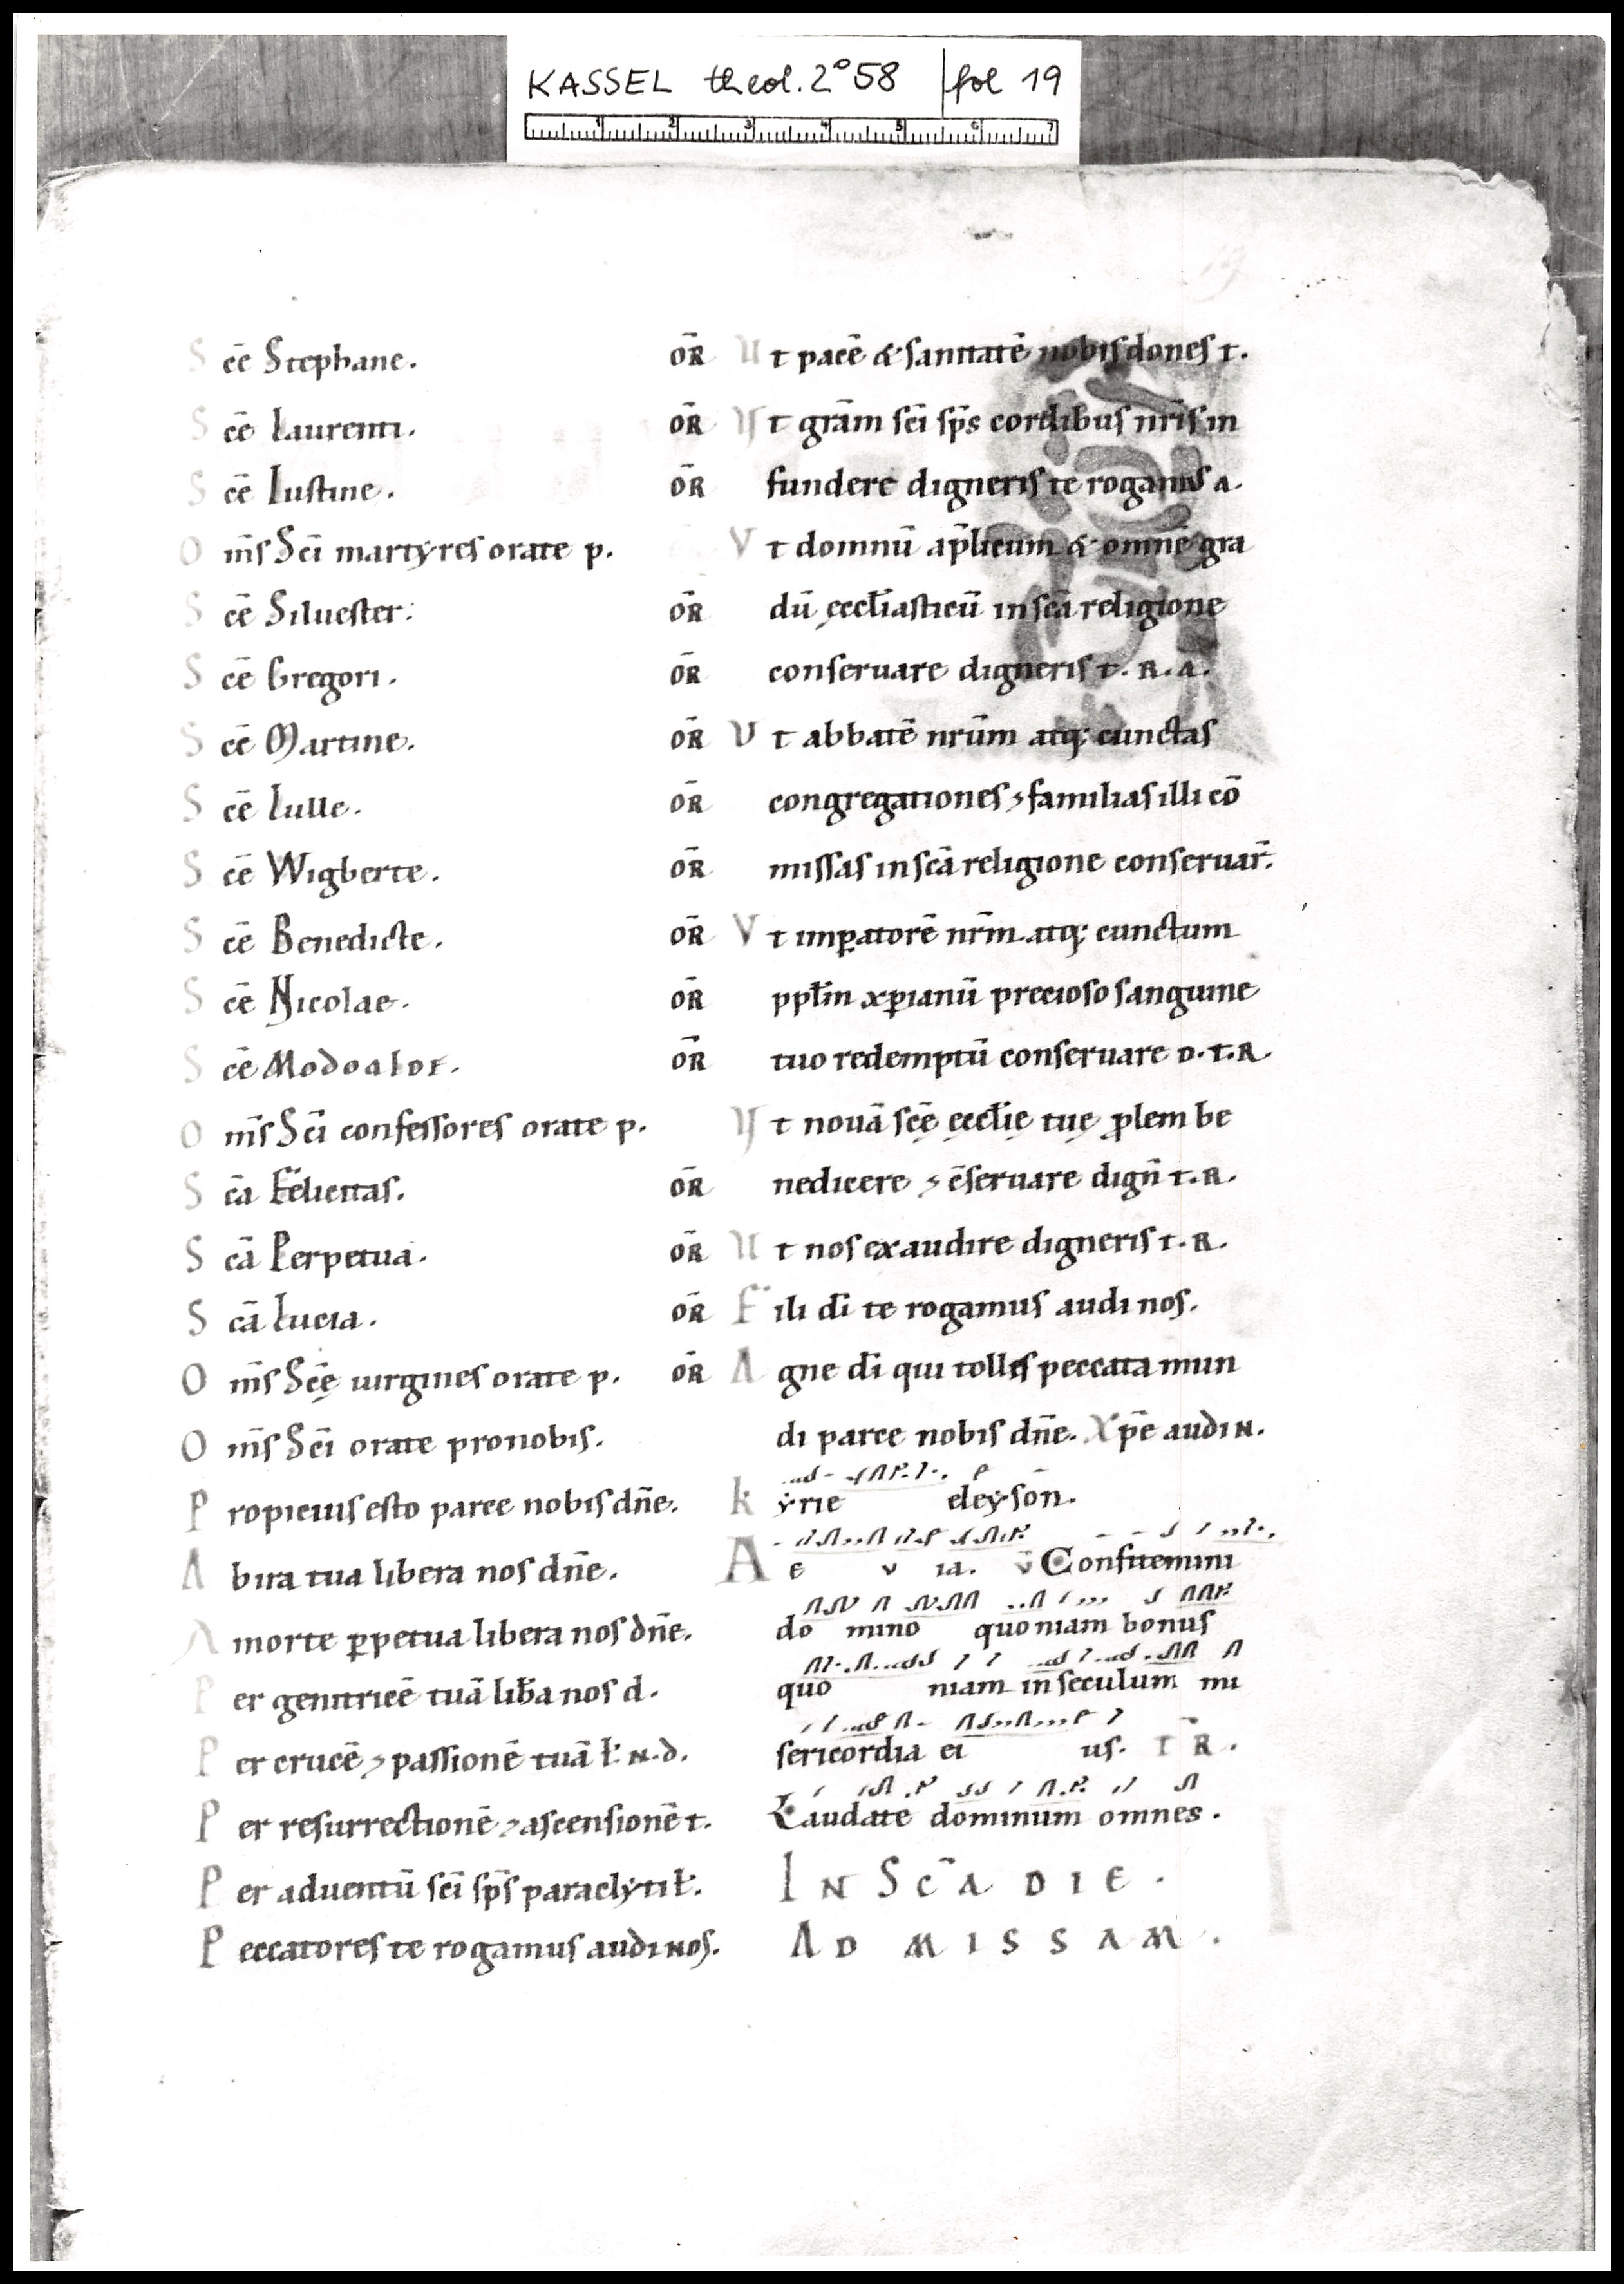 KASSEL theol. 2° 58 | fol 19
1 2 3 4 5 6 7
S cē Stephane. OR̄
S cē Laurenti. OR̄
S cē Iustine. OR̄
O m̄s Sc̄i martyres orate p.
S cē Siluester. OR̄
S cē Gregori. OR̄
S cē Martine. OR̄
S cē Lulle. OR̄
S cē Wigberte. OR̄
S cē Benedicte. OR̄
S cē Nicolae. OR̄
S cē Modoalde. OR̄
O m̄s Sc̄i confessores orate p.
S cā Felicitas. OR̄
S cā Perpetua. OR̄
S cā Lucia. OR̄
O m̄s Sc̄ę uirgines orate p. OR̄
O m̄s Sc̄i orate pro nobis.
P ropicius esto parce nobis dn̄e.
A b ira tua libera nos dn̄e.
A morte ꝑpetua libera nos dn̄e.
P er genitricē tuā lib̄a nos d.
P er crucē ⁊ passionē tuā ł. N. d.
P er resurrectionē ⁊ ascensionē t.
P er aduentū sc̄i sp̄s paraclyti ł.
P eccatores te rogamus audi nos.
U t pacē & sanitatē nobis dones t.
U t grām sc̄i sp̄s cordibus nr̄is in
fundere digneris te rogamus a.
V t domnū ap̄licum & omnē gra
dū ęccl̄iasticū in scā religione
conseruare digneris t. R. a.
U t abbatē nr̄um atq; cunctas
congregationes ⁊ familias illi cō
missas in scā religione conseruar̄.
V t imꝑatorē nr̄m atq; cunctum
ppl̄m xp̄ianū precioso sanguine
tuo redemptū conseruare D. T. R.
U t nouā sc̄ę ęccl̄ię tuę ꝓlem be
nedicere ⁊ c̄seruare dign̄ t. R.
U t nos exaudire digneris t. R.
F ili dī te rogamus audi nos.
A gne dī qui tollis peccata mun
di parce nobis dn̄e. Xp̄e audi N.
k yrie eleyson.
A e v ia. v̄ Confitemini
do mino quoniam bonus
quo niam in seculum mi
sericordia ei us. T R̄.
Laudate dominum omnes.
IN SC̄A DIE.
AD MISSAM.